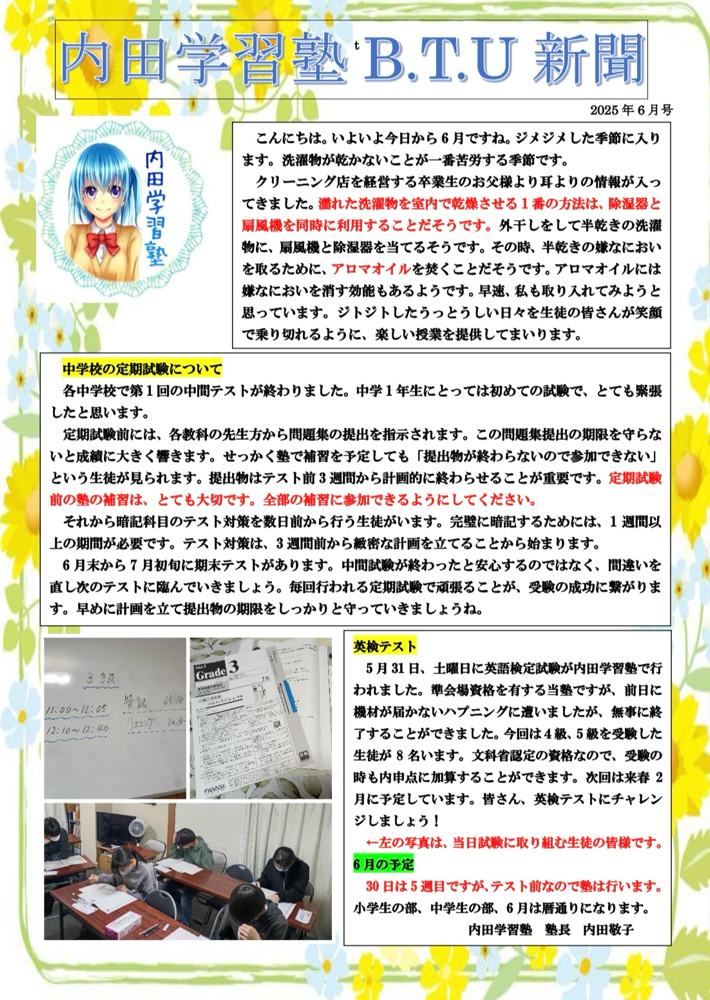 内田学習塾 t B.T.U 新聞
2025年6月号
内田学習塾
こんにちは。いよいよ今日から6月ですね。ジメジメした季節に入り
ます。洗濯物が乾かないことが一番苦労する季節です。
クリーニング店を経営する卒業生のお父様より耳よりの情報が入っ
てきました。濡れた洗濯物を室内で乾燥させる1番の方法は、除湿器と
扇風機を同時に利用することだそうです。外干しをして半乾きの洗濯
物に、扇風機と除湿器を当てるそうです。その時、半乾きの嫌なにおい
を取るために、アロマオイルを焚くことだそうです。アロマオイルには
嫌なにおいを消す効能もあるようです。早速、私も取り入れてみようと
思っています。ジトジトしたうっとうしい日々を生徒の皆さんが笑顔
で乗り切れるように、楽しい授業を提供してまいります。
中学校の定期試験について
各中学校で第1回の中間テストが終わりました。中学1年生にとっては初めての試験で、とても緊張
したと思います。
定期試験前には、各教科の先生方から問題集の提出を指示されます。この問題集提出の期限を守らな
いと成績に大きく響きます。せっかく塾で補習を予定しても「提出物が終わらないので参加できない」
という生徒が見られます。提出物はテスト前3週間から計画的に終わらせることが重要です。定期試験
前の塾の補習は、とても大切です。全部の補習に参加できるようにしてください。
それから暗記科目のテスト対策を数日前から行う生徒がいます。完璧に暗記するためには、1週間以
上の期間が必要です。テスト対策は、3週間前から緻密な計画を立てることから始まります。
6月末から7月初旬に期末テストがあります。中間試験が終わったと安心するのではなく、間違いを
直し次のテストに臨んでいきましょう。毎回行われる定期試験で頑張ることが、受験の成功に繋がりま
す。早めに計画を立て提出物の期限をしっかりと守っていきましょうね。
3級
11:00～12:05 筆記 65分
12:10～12:40 リスニング 30分
Grade 3
英検テスト
5月31日、土曜日に英語検定試験が内田学習塾で行
われました。準会場資格を有する当塾ですが、前日に
機材が届かないハプニングに遭いましたが、無事に終
了することができました。今回は4級、5級を受験した
生徒が8名います。文科省認定の資格なので、受験の
時も内申点に加算することができます。次回は来春2
月に予定しています。皆さん、英検テストにチャレン
ジしましょう！
←左の写真は、当日試験に取り組む生徒の皆様です。
6月の予定
30日は5週目ですが、テスト前なので塾は行います。
小学生の部、中学生の部、6月は暦通りになります。
内田学習塾 塾長 内田敬子